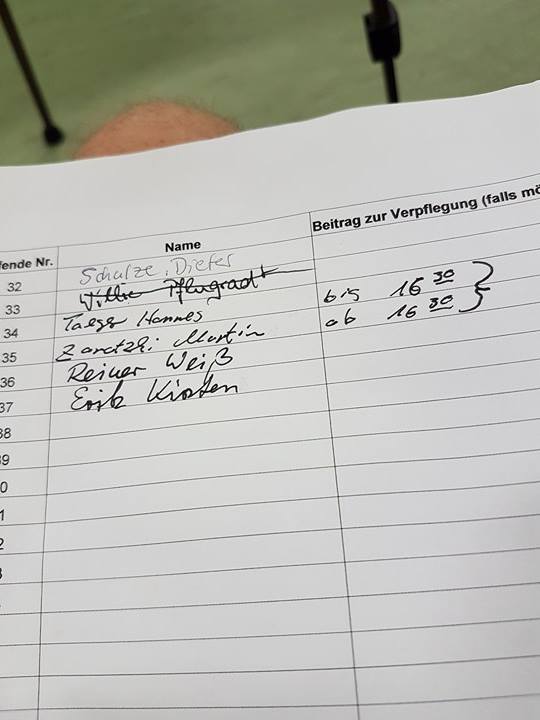 fende Nr. Name Beitrag zur Verpflegung (falls mö
32 Schulze, Dieter
33 Willie Pflugradt
34 Taeger Hannes bis 16 30
35 Martin ab 16 30
36 Reiner Weiß
37 Erik Kirsten
38
39
0
1
2